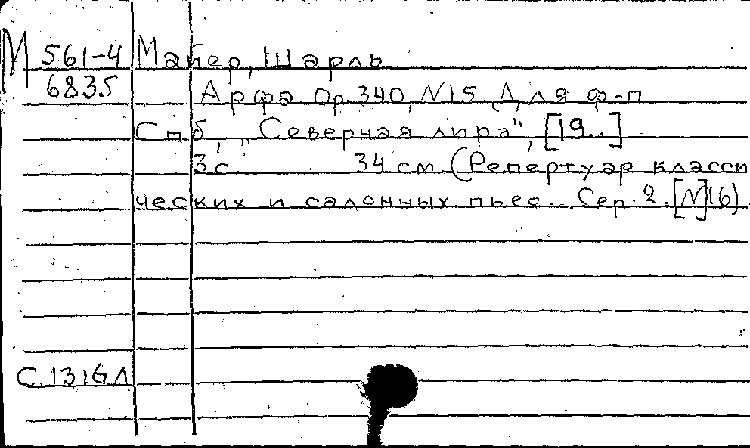 М 561-4 Майер, Шарль
6835
Арфа Op. 340, N15 Для ф-п
Спб, "Северная лира", [19..]
3 с 34 см (Репертуар класси
ческих и салонных пьес. Сер. 2. [N](6)
С 1316Л